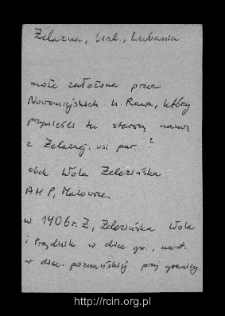 Żelazna, Lub., Lubania
może założona przez
Nowomiejskich h. Rawa, którzy
przynieśli tu starszą nazwę
z Żelaznej, wsi par.?
obok Wola Żelezińska
AHP, Mazowsze
w 1406 r. Ż, Żelezińska Wola
i Prądnik w diec. gn.,
w diec. poznańskiej przy granicy.
http://rcin.org.pl